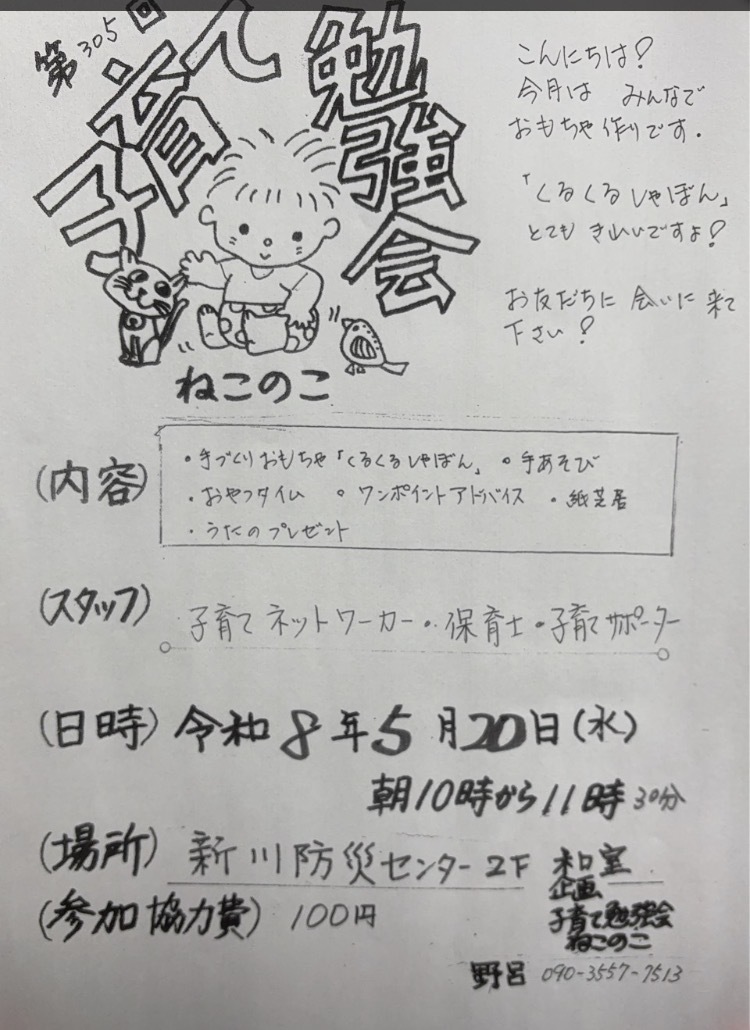 第305回
子育て勉強会
ねこのこ
こんにちは!
今月は みんなで
おもちゃ作りです.
「くるくるしゃぼん」
とても きれいですよ!
お友だちに 会いに 来て
下さい!
(内容)
・手づくりおもちゃ「くるくるしゃぼん」 ・手あそび
・おやつタイム ・ワンポイントアドバイス ・紙芝居
・うたのプレゼント
(スタッフ) 子育てネットワーカー・保育士・子育てサポーター
(日時) 令和8年5月20日(水)
朝10時から11時30分
(場所) 新川防災センター2F 和室
(参加協力費) 100円
企画
子育て勉強会
ねこのこ
野呂 090-3557-7513